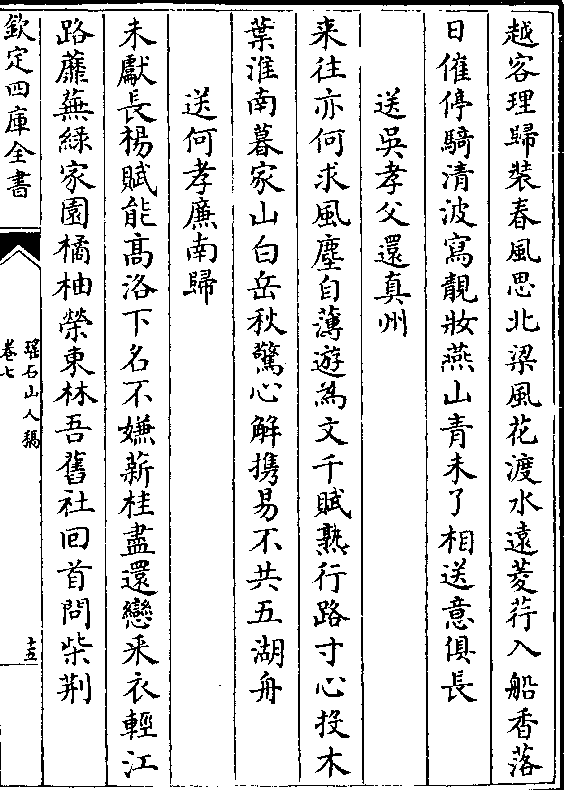 越客理歸裝春風思北梁風花渡水遠菱荇入船香落
日催停騎清波寫靚妝燕山青未了相送意俱長
送吳孝父還真州
來往亦何求風塵自薄遊為文千賦熟行路寸心投木
葉淮南暮家山白岳秋驚心解攜易不共五湖舟
送何孝廉南歸
未獻長楊賦能高洛下名不嫌薪桂盡還戀采衣輕江
路蘼蕪綠家園橘柚榮東林吾舊社回首問柴荆
欽定四庫全書
瑶石山人稿
卷七
十五